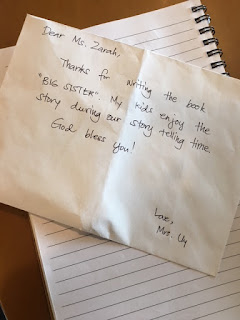 Dear Ms. Zarah,
Thanks for writing the book
"BIG SISTER". My kids enjoy the
story during our story telling time.
God bless you!
Love,
Mrs. Uy